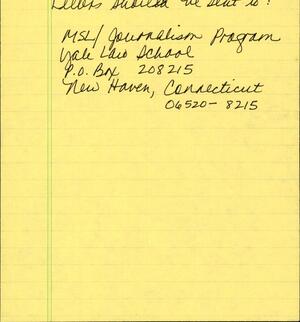 Letters should be sent to:
MSL/Journalism Program
Yale Law School
P.O. Box 208215
New Haven, Connecticut
06520-8215